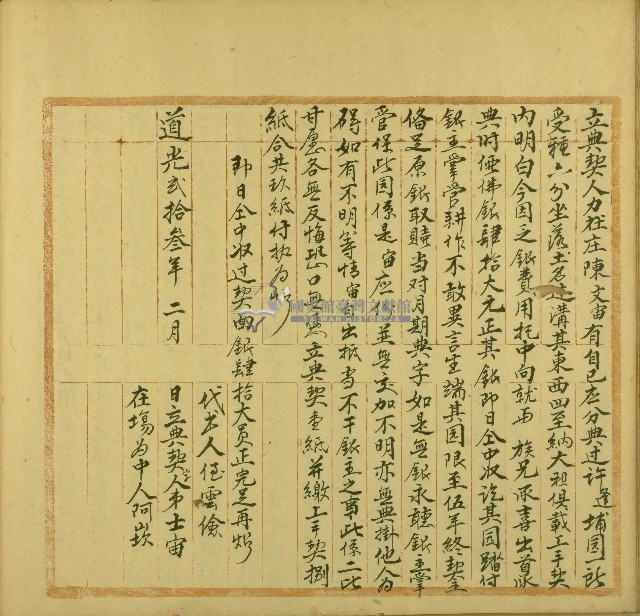 立典契人力社庄陳文宙有自己应分典过許逢埔园一所
受種六分坐落土名 溝其東西四至納大租俱載上手契
內明白今因乏銀費用托中向就与 族兄承喜出首承
典时值佛銀肆拾大元正其銀即日仝中收訖其园踏付
銀主掌管耕作不敢異言生端其园限至伍年終契金
俻足原銀取贖当对月期典字如是無銀永聽銀主掌
管保此园係是宙应 並無交加不明亦無典掛他人為
碍如有不明等情宙自出抵当不干銀主之事此係二比
甘愿各無反悔 口無憑立典契壹紙并繳上手契捌
紙合共玖紙付执為炤
即日仝中收过契面銀肆拾大员正完足再炤
代书人侄雲儉
道光弍拾叁年 二月
日立典契人弟士宙
在場為中人阿崁
國史館臺灣文獻館
TAIWAN HISTORICA